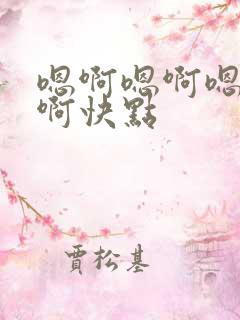 嗯啊嗯啊嗯
啊快點
賈松基